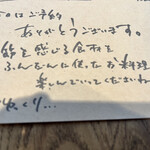 日はご予約
ありがとうございます。
節を感じる食材を
ふんだんに使ったお料理
楽しんでいってくださいね
ゆっくり...